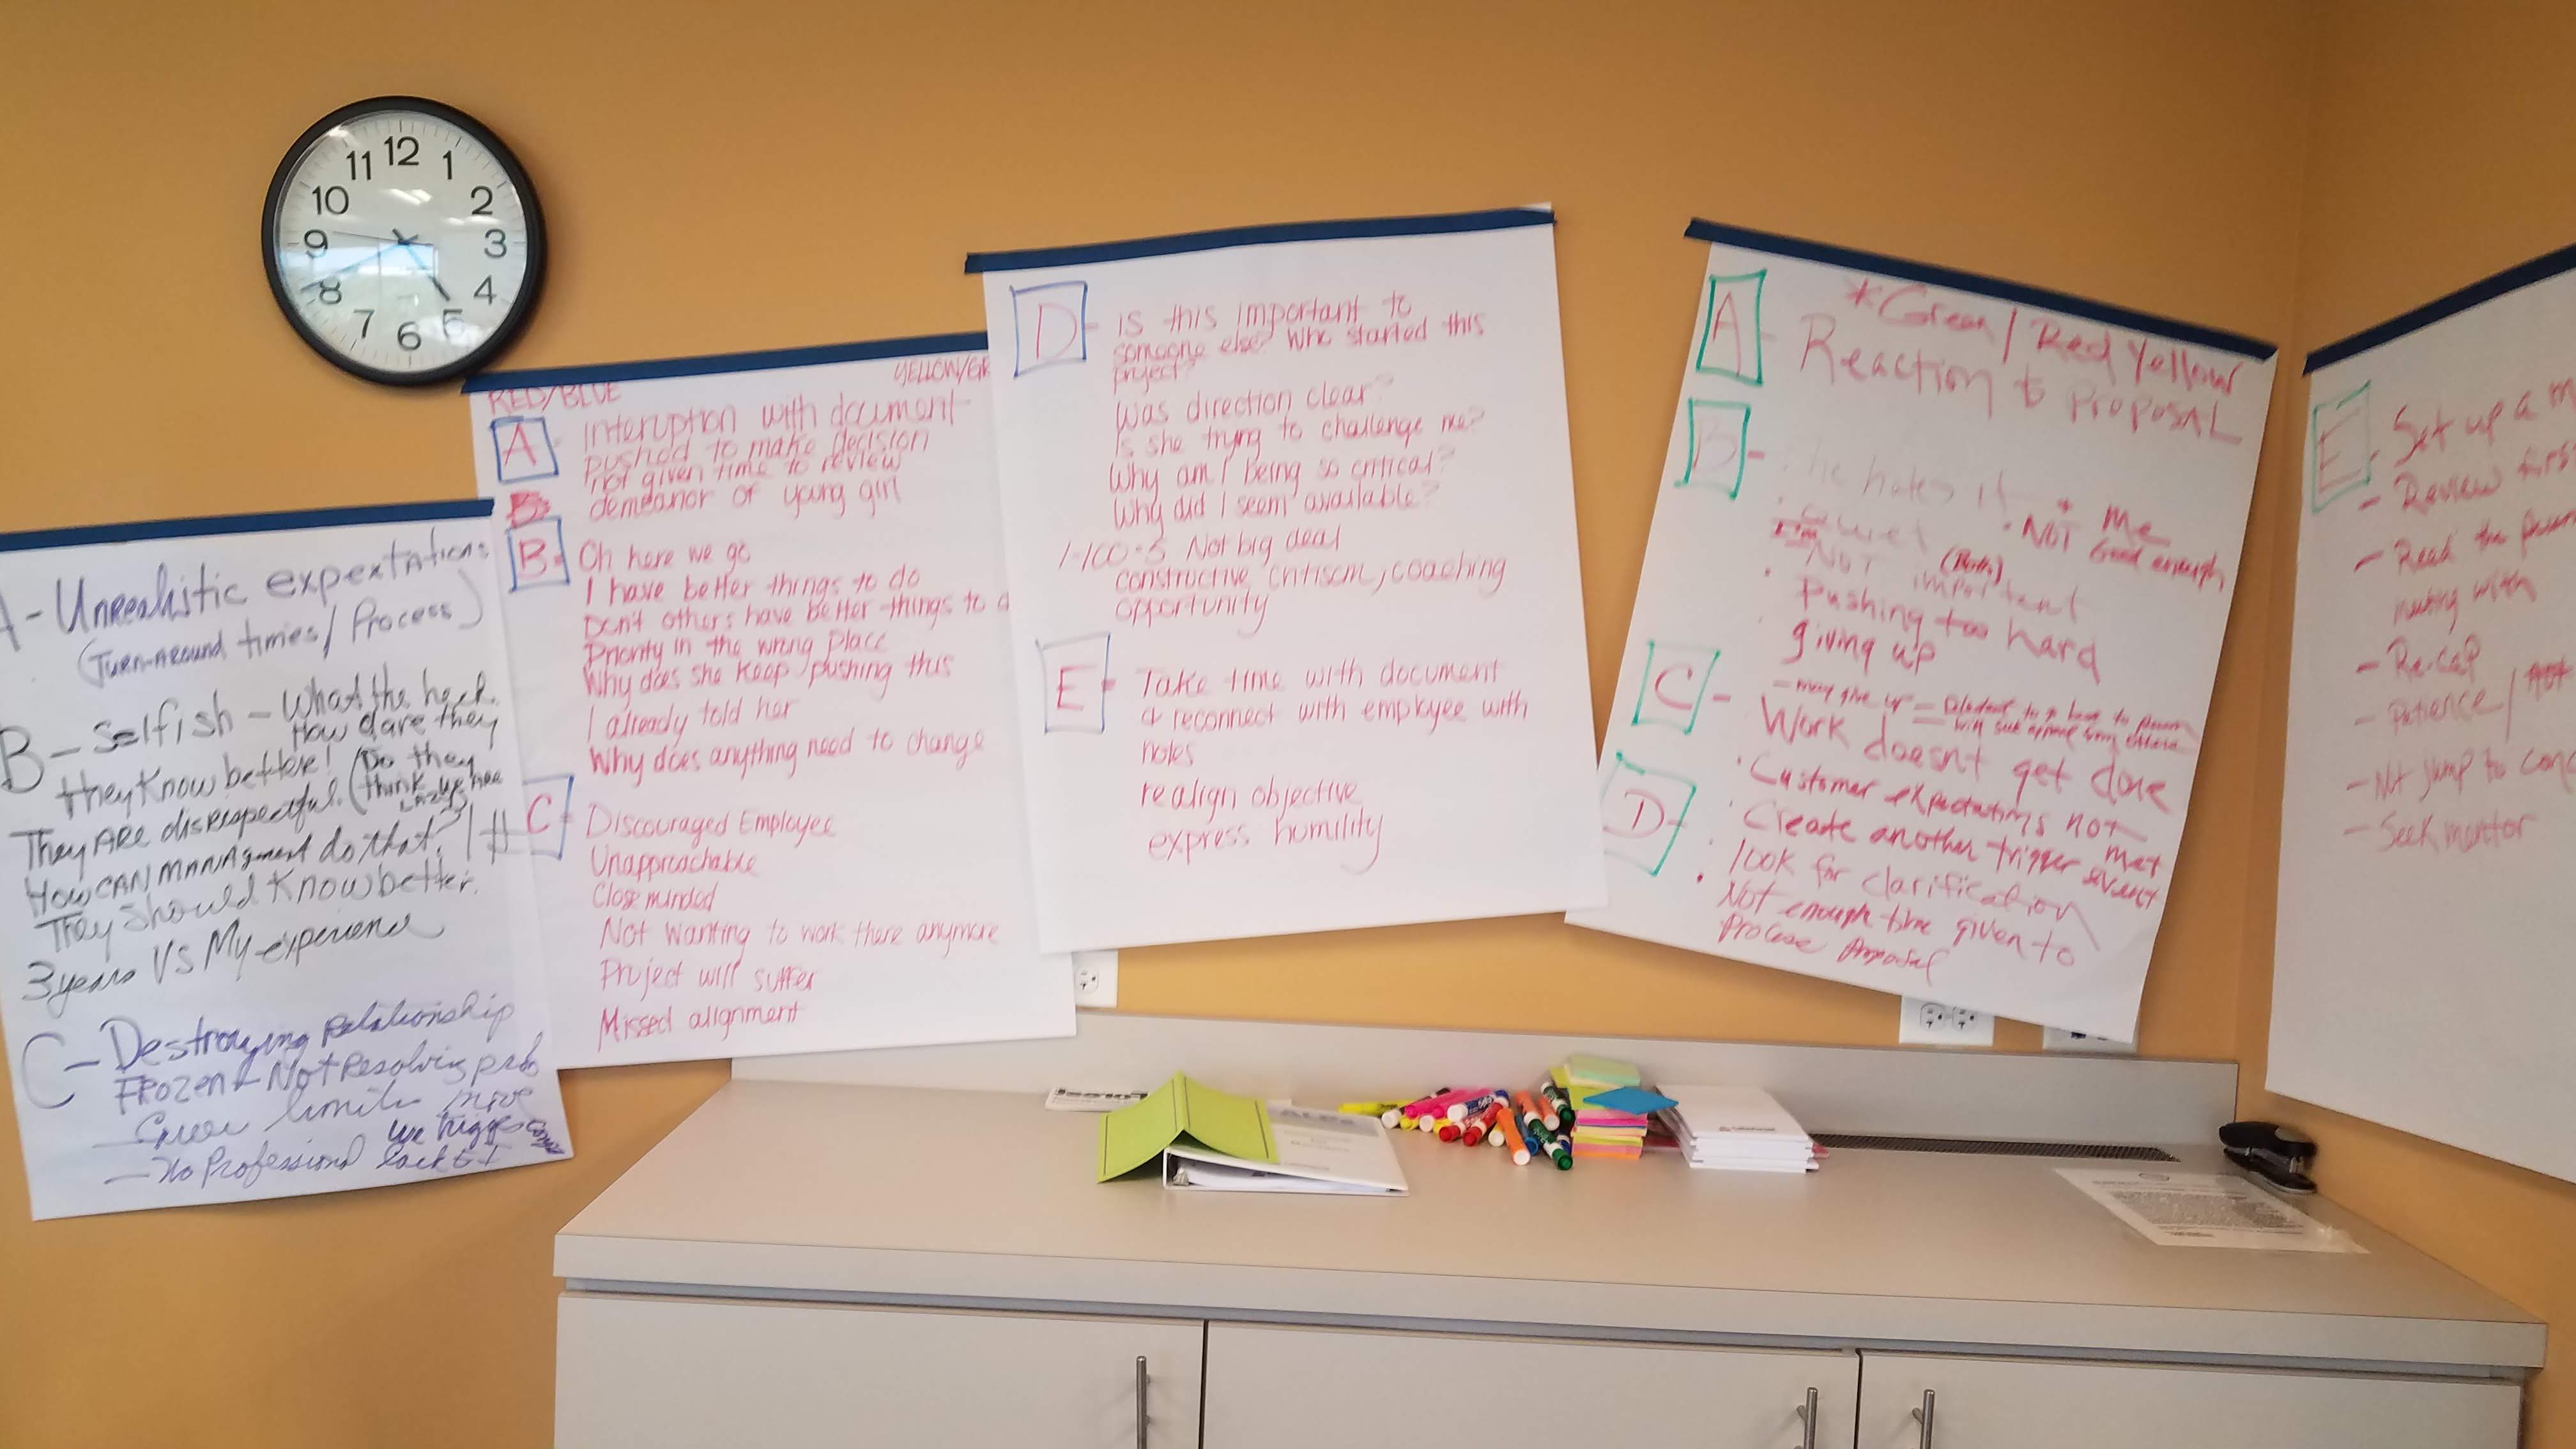 12
1
2
3
4
5
6
7
8
9
10
11
A - Unrealistic expextations
(Turn-Around times / Process)
B - Selfish - What the heck.
How dare they
they Know better! (Do they
They ARE disrespectful. (think we are
Lazy?)
How CAN MANAgment do that?
They Should Know better.
3 years VS My experience
C - Destroying relationship
FROZEN - Not Resolving prob
limits
- No Professional
we trigger
RED/BLUE
YELLOW/GR
A - interuption with document
pushed to make decision
not given time to review
demeanor of young girl
B
B - Oh here we go
I have better things to do
Don't others have better things to d
Priority in the wrong place
Why does she keep pushing this
I already told her
Why does anything need to change
C - Discouraged Employee
Unapproachable
Close minded
Not wanting to work there anymore
Project will suffer
Missed allignment
D - is this important to
someone else? Who started this
project?
Was direction clear?
Is she trying to challenge me?
Why am I being so critical?
Why did I seem available?
1-100 = 5 Not big deal
constructive critiscm, coaching
opportunity
E - Take time with document
& reconnect with employee with
notes
realign objective
express humility
*Green / Red Yellow
A - Reaction to Proposal
B - he hates it + me
· quiet · NOT Good enough
I'm NOT important (Both)
· Pushing too hard
giving up
C - - may give up =
Work doesn't get done
· Customer expectations not met
· Create another trigger event
D - · look for clarification
· Not enough time given to
Process Proposal
E - Set up a m
- Review firs
- Read the person
meeting with
- Re-cap
- Patience /
- Not jump to conc
- Seek mentor